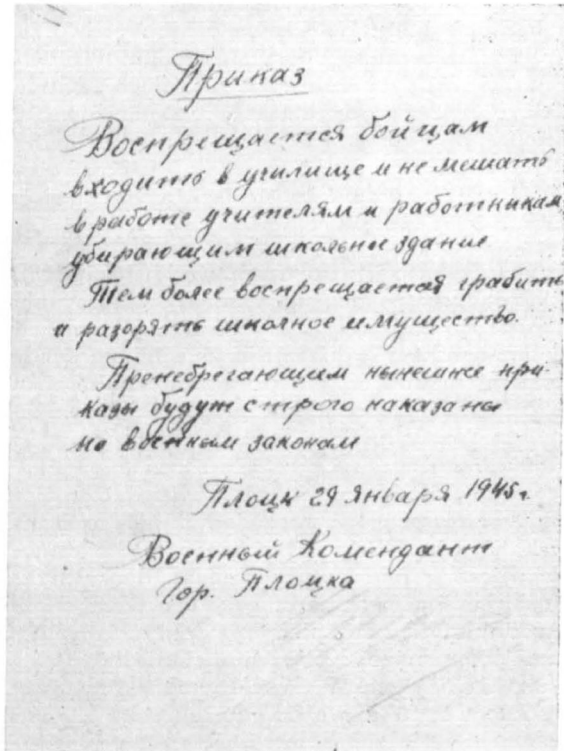 Приказ
Воспрещается бойцам
входить в училище и не мешать
в работе учителям и работникам,
убирающим школьне здание
Тем более воспрещается грабить
и разорять школное имущество.
Пренебрегающим нынешне при-
казы будут строго наказаны
по военным законам
Плоцк 29 января 1945 г.
Военный Комендант
Гор. Плоцка